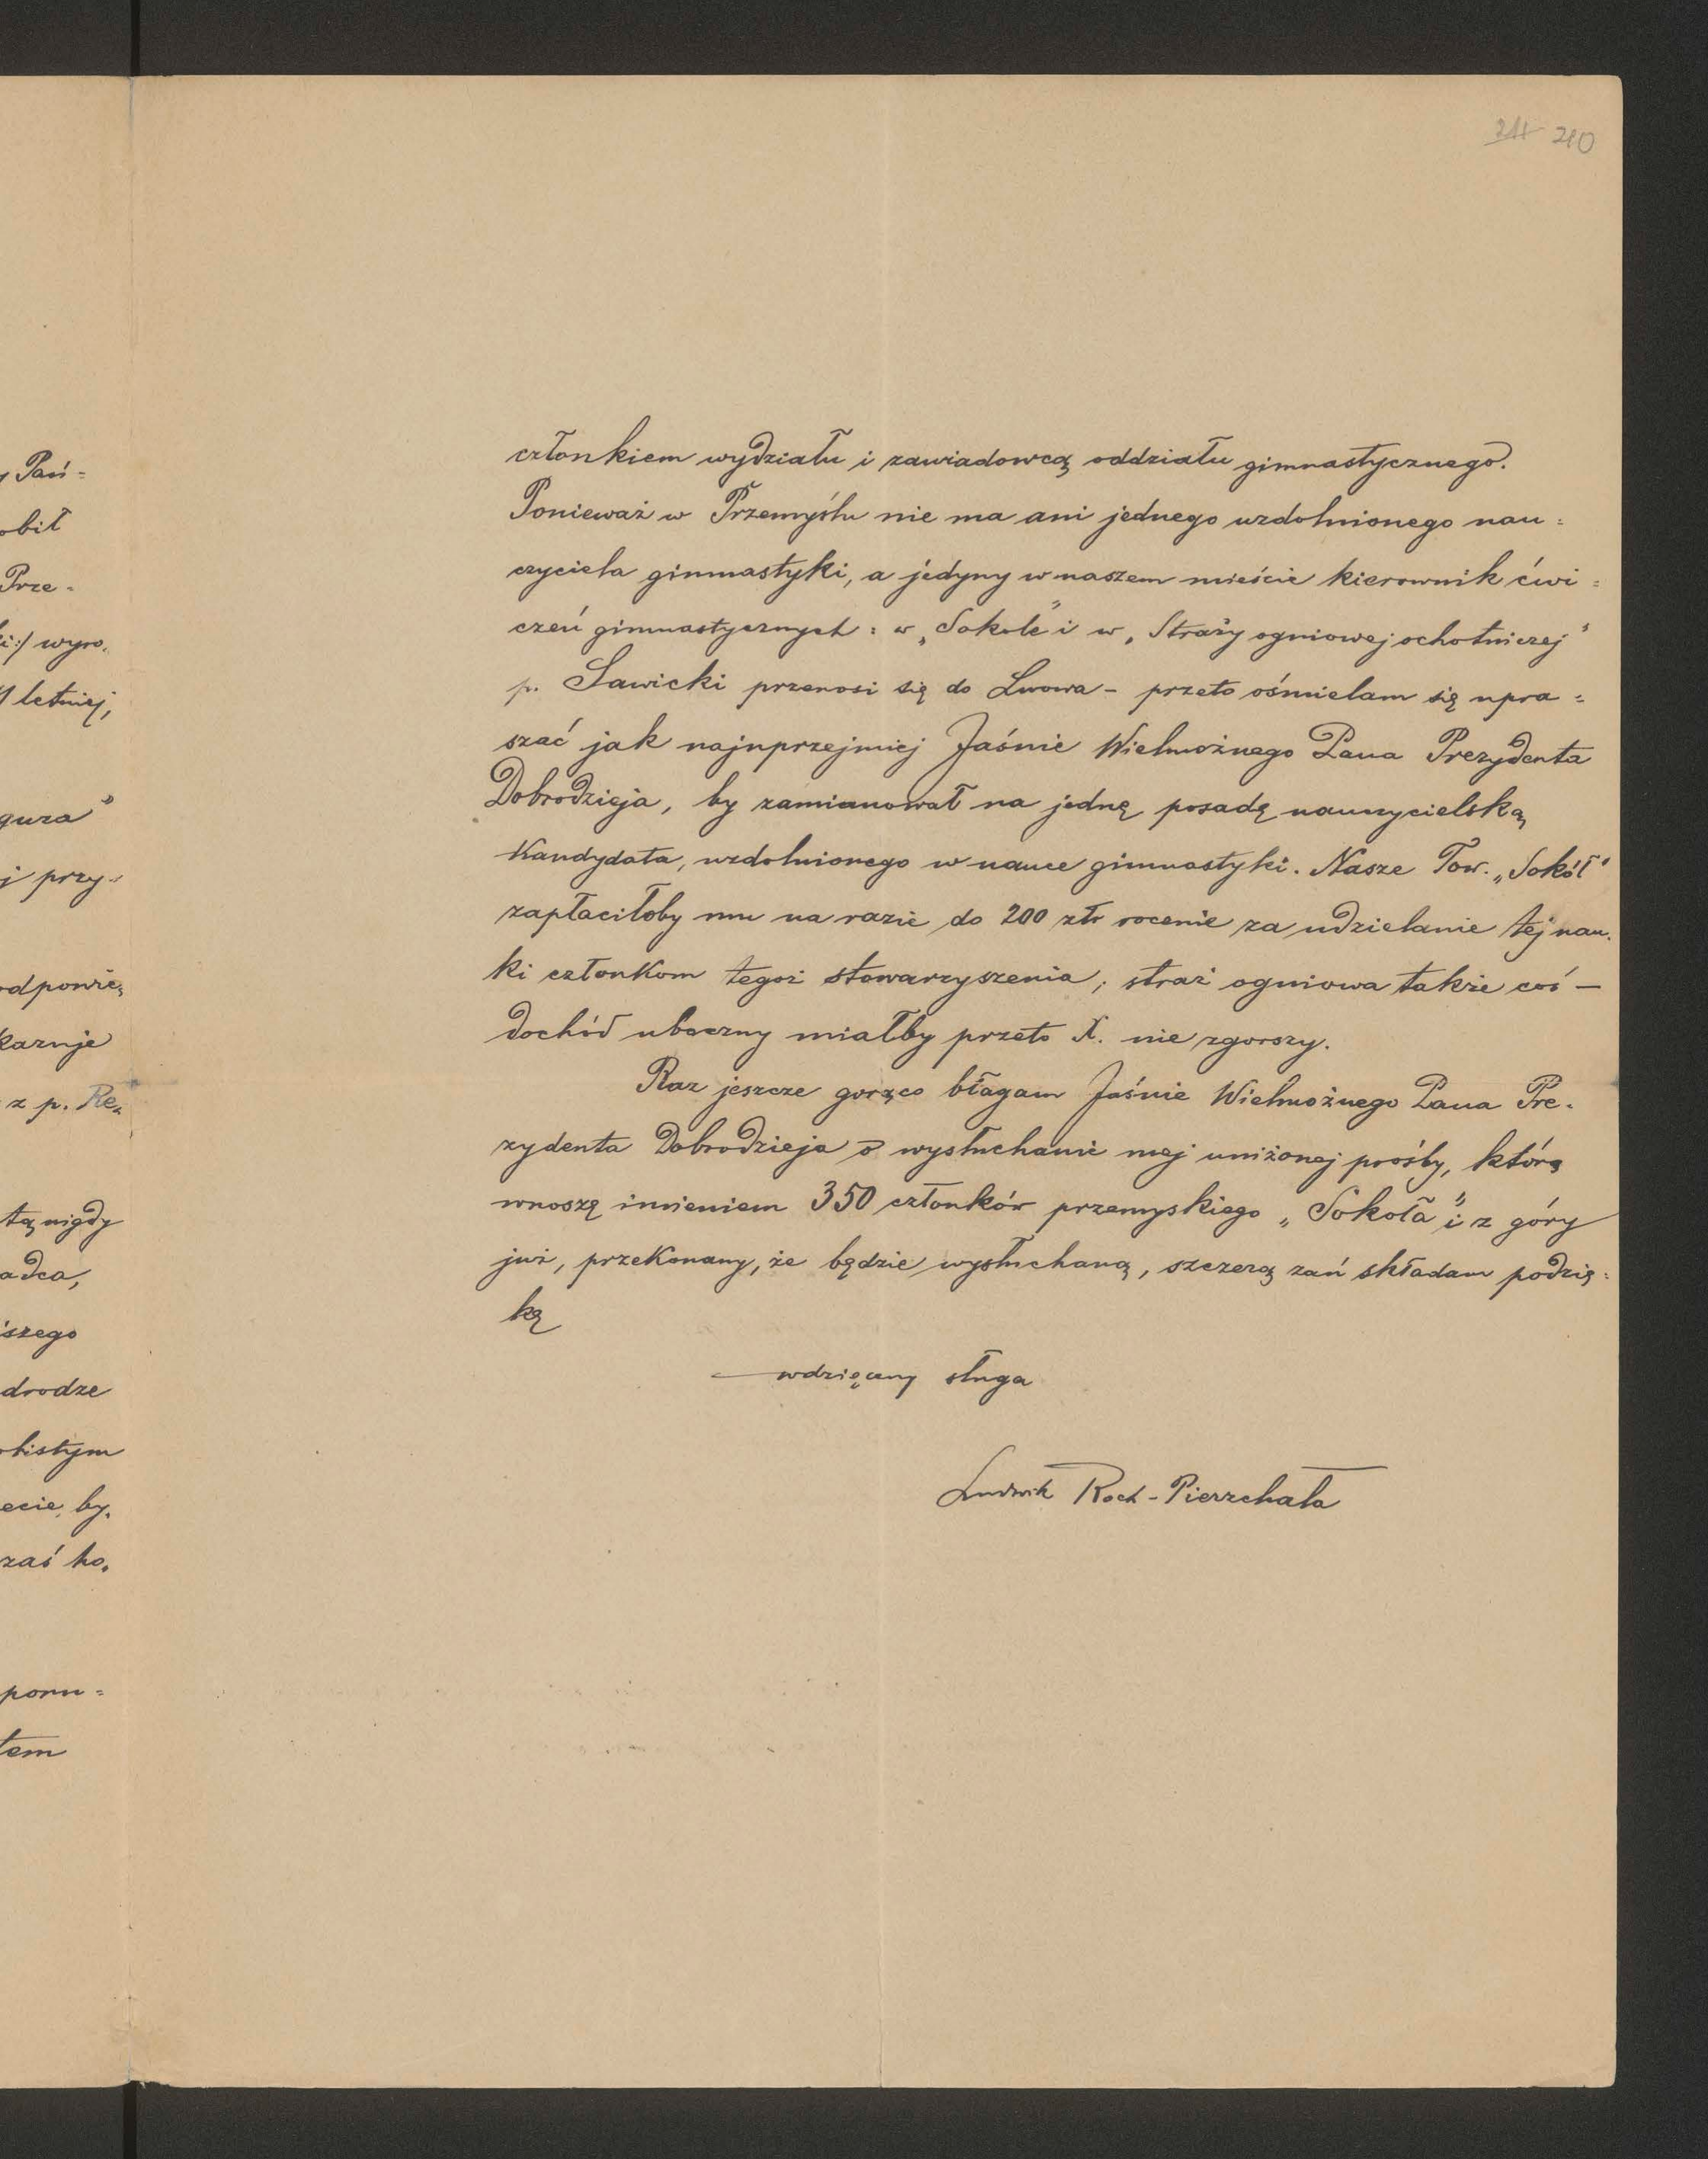 211 210
członkiem wydziału i zawiadowcą oddziału gimnastycznego.
Ponieważ w Przemyślu nie ma ani jednego uzdolnionego nau=
czyciela gimnastyki, a jedyny w naszem mieście kierownik ćwi=
czeń gimnastycznych: w „Sokole" i w „Straży ogniowej ochotniczej"
p. Sawicki przenosi się do Lwowa - przeto ośmielam się upra=
szać jak najuprzejmiej Jaśnie Wielmożnego Pana Prezydenta
Dobrodzieja, by zamianował na jednę posadę nauczycielską
Kandydata, uzdolnionego w nauce gimnastyki. Nasze Tow. „Sokół"
zapłaciłoby mu na razie do 200 złr rocznie za udzielanie tej nau-
ki członkom tegoż stowarzyszenia, straż ogniowa także coś —
dochód uboczny miałby przeto X. nie zgorszy.
Raz jeszcze gorąco błagam Jaśnie Wielmożnego Pana Pre-
zydenta Dobrodzieja o wysłuchanie mej uniżonej prośby, którą
wnoszę imieniem 350 członków przemyskiego „Sokoła" i z góry
już, przekonany, że będzie wysłuchaną, szczerą zań składam podzię=
kę
wdzięczny sługa
Ludwik Roch-Pierzchała
Pań=
obił
Prze-
i:/ wyro-
letniej,
gura"
j przy-
odpowie-
karuje
z p. Re-
tą nigdy
adca,
szego
drodze
obistym
ecie, by-
zaś ho-
poru=
tem